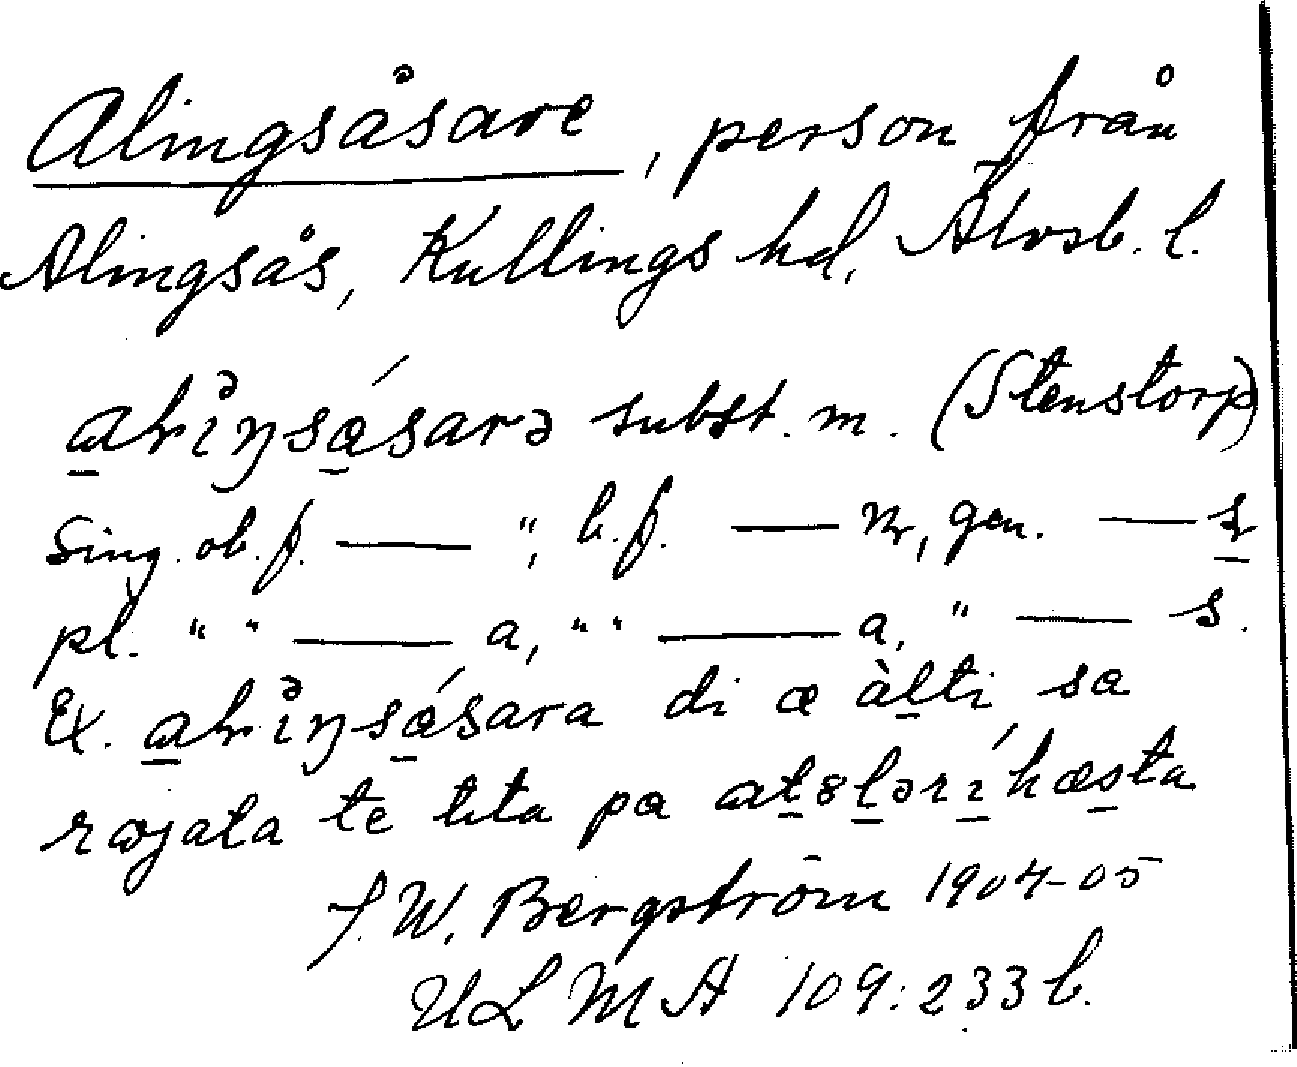 Alingsåsare, person från
Alingsås, Kullings hd, Älvsb. l.
subst. m. (Stenstorp)
Sing. ob. f. — ", b. f. — n, gen. — s
pl. " " — a, " " — a, " — s.
Ex. di æ àlti sa
te tita pa
J. W. Bergström 1904-05
ULMA 109:233 b.